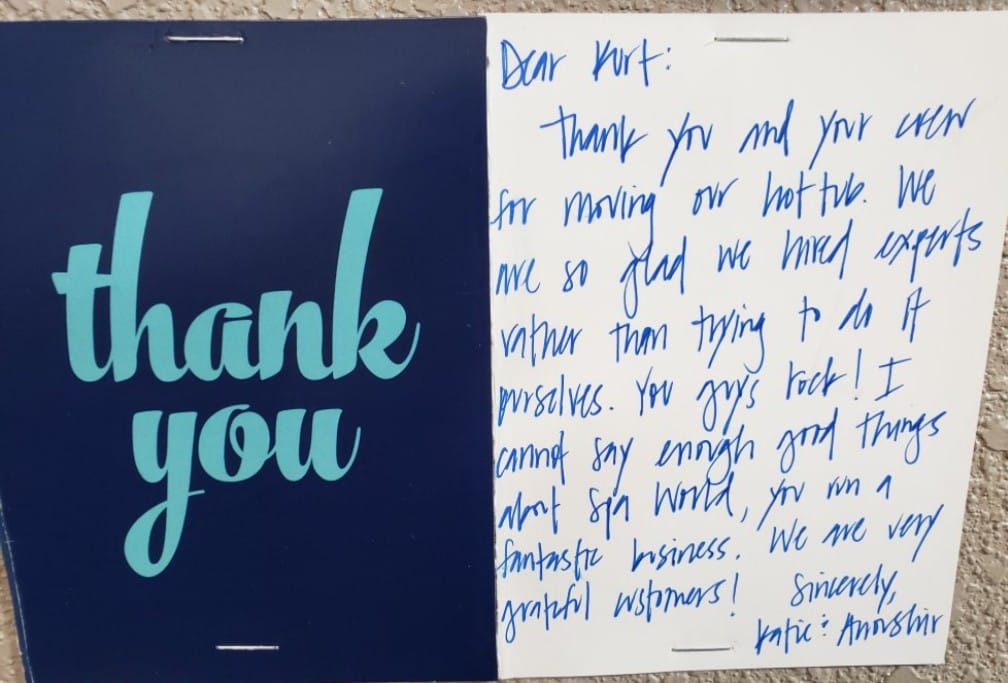 thank
you
Dear Kurt:
Thank you and your crew
for moving our hot tub. We
are so glad we hired experts
rather than trying to do it
ourselves. You guys rock! I
cannot say enough good things
about Spa World, you run a
fantastic business. We are very
grateful customers! Sincerely,
Katie & Anoushir